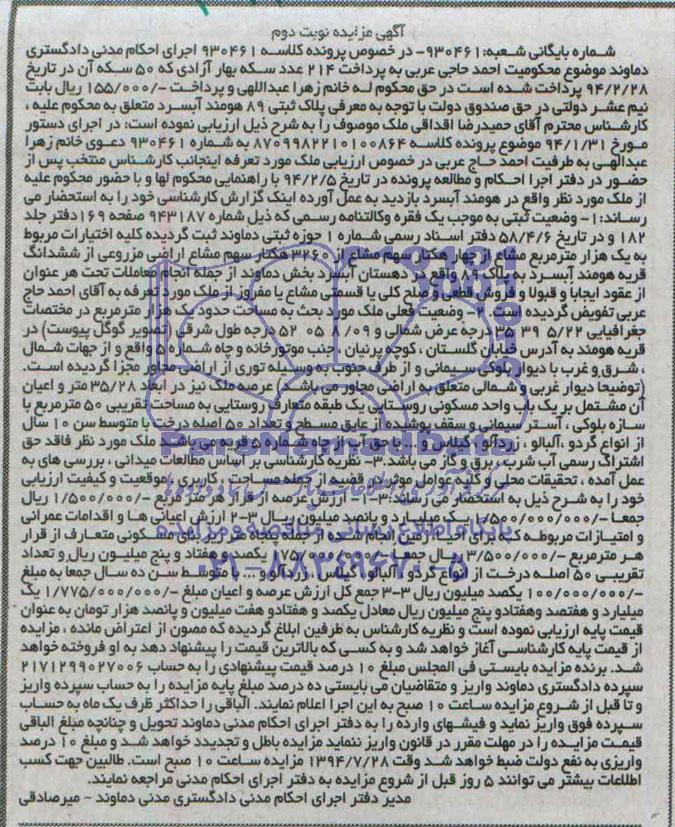 آگهی مزایده نوبت دوم
شماره بایگانی شعبه: ۹۳۰۴۶۱- در خصوص پرونده کلاسه ۹۳۰۴۶۱ اجرای احکام مدنی دادگستری
دماوند موضوع محکومیت احمد حاجی عربی به پرداخت ۲۱۴ عدد سکه بهار آزادی که ۵۰ سکه آن در تاریخ
۹۴/۲/۲۸ پرداخت شده است در حق محکوم له خانم زهرا عبداللهی و پرداخت -/۱۵۵/۰۰۰ ریال بابت
نیم عشر دولتی در حق صندوق دولت با توجه به معرفی پلاک ثبتی ۸۹ هومند آبسرد متعلق به محکوم علیه ،
کارشناس محترم آقای حمیدرضا اقداقی ملک موصوف را به شرح ذیل ارزیابی نموده است: در اجرای دستور
مورخ ۹۴/۱/۳۱ موضوع پرونده کلاسه ۸۷۰۹۹۸۲۲۱۰۱۰۰۸۶۴ به شماره ۹۳۰۴۶۱ دعوی خانم زهرا
عبدالهی به طرفیت احمد حاج عربی در خصوص ارزیابی ملک مورد تعرفه اینجانب کارشناس منتخب پس از
حضور در دفتر اجرا احکام و مطالعه پرونده در تاریخ ۹۴/۲/۵ با راهنمایی محکوم لها و با حضور محکوم علیه
از ملک مورد نظر واقع در هومند آبسرد بازدید به عمل آورده اینک گزارش کارشناسی خود را به استحضار می
رساند: ۱- وضعیت ثبتی به موجب یک فقره وکالتنامه رسمی که ذیل شماره ۹۴۳۱۸۷ صفحه ۱۶۹ دفتر جلد
۱۸۲ و در تاریخ ۵۸/۴/۶ دفتر اسناد رسمی شماره ۱ حوزه ثبتی دماوند ثبت گردیده کلیه اختیارات مربوط
به یک هزار مترمربع مشاع از چهار هکتار سهم مشاع از ۳۲۶۰ هکتار سهم مشاع اراضی مزروعی از ششدانگ
قریه هومند آبسرد به پلاک ۸۹ واقع در دهستان آبسرد بخش دماوند از جمله انجام معاملات تحت هر عنوان
از عقود ایجابا و قبولا و فروش قطعی و صلح کلی یا قسمتی مشاع یا مفروز از ملک مورد تعرفه به آقای احمد حاج
عربی تفویض گردیده است. ۲- وضعیت فعلی ملک مورد بحث به مساحت حدود یک هزار مترمربع در مختصات
جغرافیایی ۵/۲۲ ۳۹ ۳۵ درجه عرض شمالی و ۰۹/ ۸ ۰۵ ۵۲ درجه طول شرقی (تصویر گوگل پیوست) در
قریه هومند به آدرس خیابان گلستان ، کوچه پرنیان ، جنب موتورخانه و چاه شماره ۵ واقع و از جهات شمال
، شرق و غرب با دیوار بلوکی سیمانی و از طرف جنوب به وسیله توری از اراضی مجاور مجزا گردیده است.
(توضیحا دیوار غربی و شمالی متعلق به اراضی مجاور می باشد) عرصه ملک نیز در ابعاد ۳۵/۲۸ متر و اعیان
آن مشتمل بر یک باب واحد مسکونی روستایی یک طبقه متعارف روستایی به مساحت تقریبی ۵۰ مترمربع با
سازه بلوکی ، آستر سیمانی و سقف پوشیده از عایق مسطح و تعداد ۵۰ اصله درخت با متوسط سن ۱۰ سال
از انواع گردو ،آلبالو ، زردآلو ، گیلاس و ... با حق آب از چاه شماره ۵ قریه می باشد. ملک مورد نظر فاقد حق
اشتراک رسمی آب شرب ، برق و گاز می باشد. ۳- نظریه کارشناسی بر اساس مطالعات میدانی ، بررسی های به
عمل آمده ، تحقیقات محلی و کلیه عوامل موثر در قضیه از جمله مساحت ، کاربری ، موقعیت و کیفیت ارزیابی
خود را به شرح ذیل به استحضار می رساند: ۳-۱ ارزش عرصه از قرار هر متر مربع -/۱/۵۰۰/۰۰۰ ریال
جمعا -/۱/۵۰۰/۰۰۰/۰۰۰ یک میلیارد و پانصد میلیون ریال ۳-۲ ارزش اعیانی ها و اقدامات عمرانی
و امتیازات مربوطه که برای احیاء زمین انجام شده از جمله پنجاه متر زیربنای مسکونی متعارف از قرار
هر مترمربع -/۳/۵۰۰/۰۰۰ ریال جمعا -/۱۷۵/۰۰۰/۰۰۰ یکصد و هفتاد و پنج میلیون ریال و تعداد
تقریبی ۵۰ اصله درخت از انواع گردو ، آلبالو ، گیلاس ، زردآلو و ... با متوسط سن ده سال جمعا به مبلغ
-/۱۰۰/۰۰۰/۰۰۰ یکصد میلیون ریال ۳-۳ جمع کل ارزش عرصه و اعیان مبلغ -/۱/۷۷۵/۰۰۰/۰۰۰ یک
میلیارد و هفتصد وهفتادو پنج میلیون ریال معادل یکصد و هفتادو هفت میلیون و پانصد هزار تومان به عنوان
قیمت پایه ارزیابی نموده است و نظریه کارشناس به طرفین ابلاغ گردیده که مصون از اعتراض مانده ، مزایده
از قیمت پایه کارشناسی آغاز خواهد شد و به کسی که بالاترین قیمت را پیشنهاد دهد به او فروخته خواهد
شد. برنده مزایده بایستی فی المجلس مبلغ ۱۰ درصد قیمت پیشنهادی را به حساب ۲۱۷۱۲۹۹۰۲۷۰۰۶
سپرده دادگستری دماوند واریز و متقاضیان می بایستی ده درصد مبلغ پایه مزایده را به حساب سپرده واریز
و تا قبل از شروع مزایده ساعت ۱۰ صبح به این اجرا اعلام نمایند. الباقی را حداکثر ظرف یک ماه به حساب
سپرده فوق واریز نماید و فیشهای وارده را به دفتر اجرای احکام مدنی دماوند تحویل و چنانچه مبلغ الباقی
قیمت مزایده را در مهلت مقرر در قانون واریز ننماید مزایده باطل و تجدید خواهد شد و مبلغ ۱۰ درصد
واریزی به نفع دولت ضبط خواهد شد وقت ۱۳۹۴/۷/۲۸ مزایده ساعت ۱۰ صبح است. طالبین جهت کسب
اطلاعات بیشتر می توانند ۵ روز قبل از شروع مزایده به دفتر اجرای احکام مدنی مراجعه نمایند.
مدیر دفتر اجرای احکام مدنی دادگستری مدنی دماوند - میرصادقی
ParsNamadData
پایگاه اطلاع رسانی مناقصه و مزایده
۰۲۱-۸۸۳۴۹۶۷۰-۵